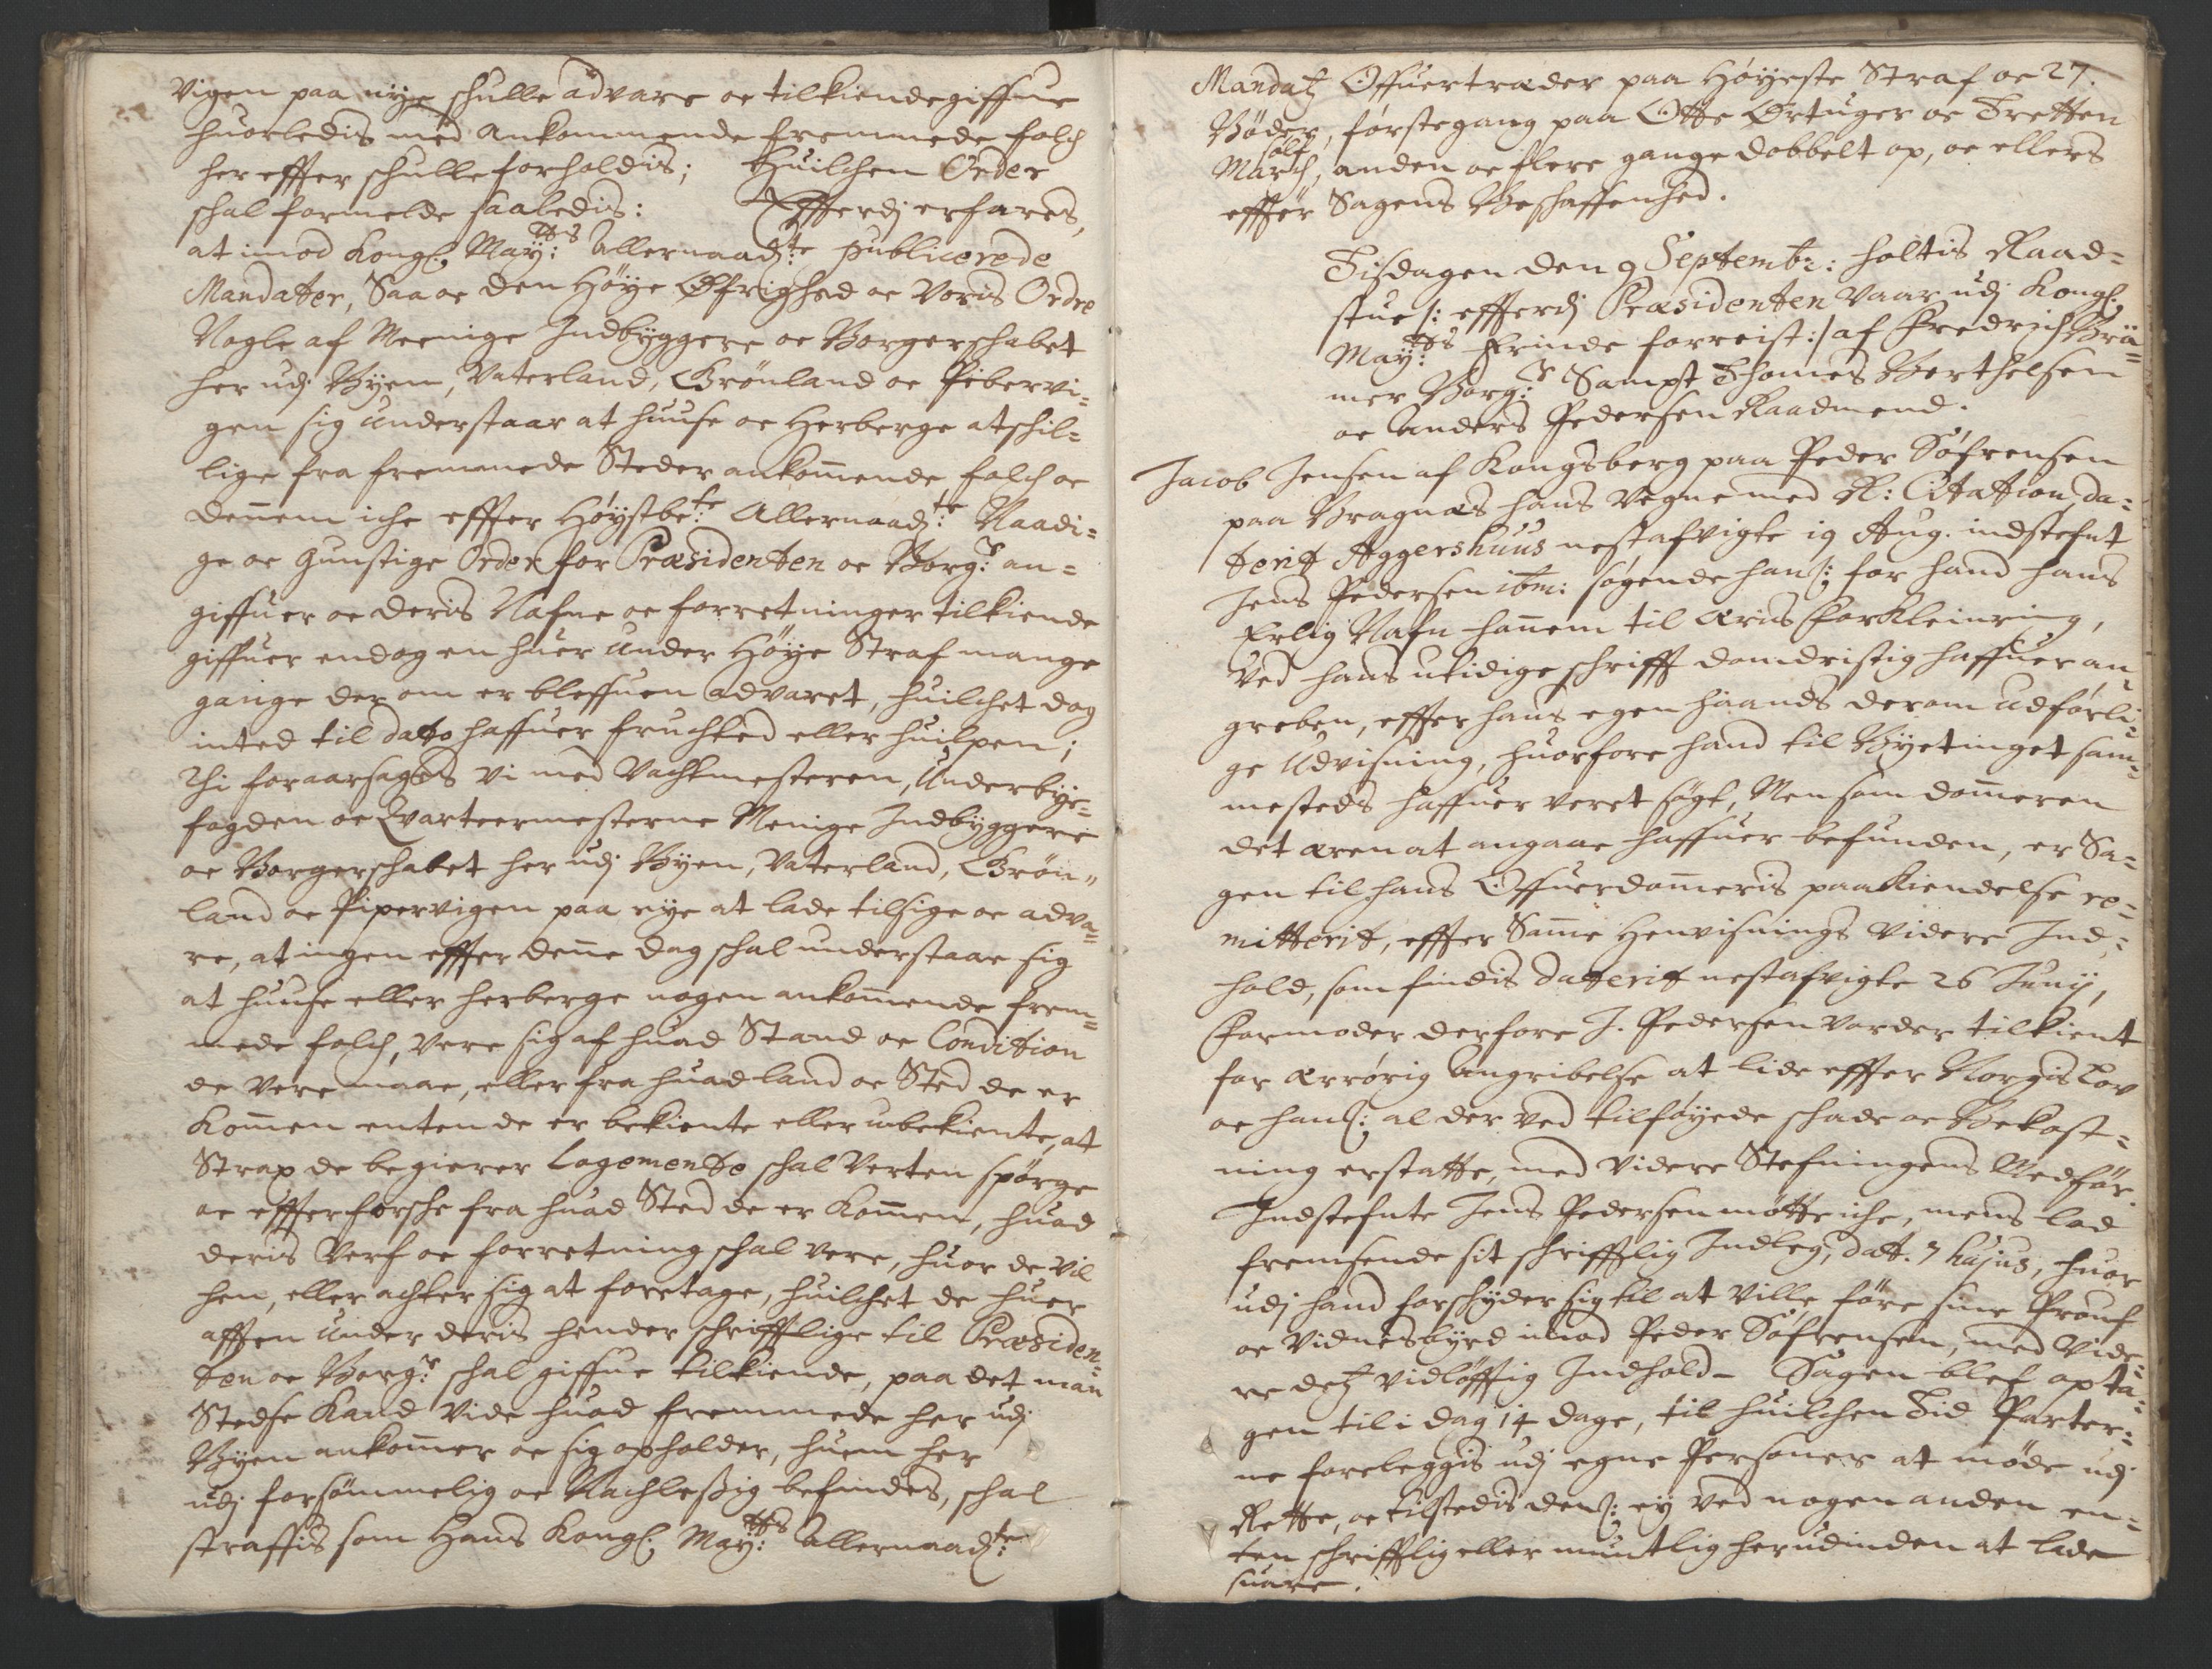 Vigen paa nÿe schulle advare oc tilkiendegiffue
huorledis med ankommende fremmede folch
her effter schulle forholdis; Huilchen Order
schal formelde saaledis: Effterdj erfares,
at imod Kongl: Maÿ:tts allernaadg:te publicerede
Mandater, Saa oc den Høÿe Øfrighed oc voris Ordre
Nogle af Meenige Indbÿggere oc Borgerschabet
her udj Bÿen, Vaterland, Grönland oc Pibervi=
gen sig understaar at huuse oc Herberge atschil=
lige fra fremmede Steder ankom̄ende folch oc
den̄em iche effter Høÿstbe:te Allernaadg:te Naadi=
ge oc Gunstige Order for Præsidenten oc Borg:r an=
giffuer oc deris Nafne oc forretninger tilkiende
giffuer endog en huer under Høÿe Straf mange
gange der om er bleffuen advaret, huilchet dog
inted til dato haffuer fruchted eller huilpen;
Thi foraarsages vi med Vachtmesteren, Underbÿe=
fogden oc Qvarteermesterne Menige Indbÿggere
oc Borgerschabet her udj Bÿen, Vaterland, Grön„
land oc Pipervigen paa nÿe at lade tilsige oc adva=
re, at ingen effter den̄e dag schal understaae sig
at huuse eller herberge nogen ankom̄ende frem=
mede folch, vere sig af huad Stand oc Condition
de vere maae, eller fra huad land oc Sted de er
Kom̄en enten de er bekiente eller ubekiente, at
Strax de begierer Logemente schal Verten spørge
oc effterforsche fra huad Sted de er Kom̄en, huad
deris Verf oc forretning schal vere, huor de vil
hen, eller achter sig at foretage, huilchet de huer
afften under deris hender schrifftlige til Præsiden=
ten oc Borg:r schal giffue tilkiende, paa det man
Stedse Kand vide huad fremmede her udj
Bÿen ankom̄er oc sig opholder, huem her
udj forsømmelig oc Nachleßig befindes, schal
straffis som Hans Kongl: Maÿ:tts allernaadg:te
Mandatz Offuertræder paa Høÿeste Straf oc 27.
Bøder, førstegang paa Otte Ørtuger oc Tretten
March sølf, anden oc flere gange dobbelt op, oc ellers
effter Sagens Beschaffenhed.
Tisdagen den 9 Septembr: holtis Raad=
stue /: effterdj Præsidenten vaar udj Kongl:
Maÿ:tts Erinde forreist :/ af Fredrich Brä=
mer Borg:r Sampt Thomes Berthelsen
oc Anders Pedersen Raadmend.
Jacob Jensen af Kongsberg paa Peder Søfrensen
paa Bragnæs hans vegne med R: Citation, da=
terit Aggershuus nestafvigte 19 Aug. indstefnt
Jens Pedersen ibm: søgende hans: for hand hans
Erlig Nafn han̄em til æris forkleinring,
Ved hans utidige schrifft domdristig haffuer an=
greben, effter hans egen haands derom udførli=
ge Udvisning, huorfore hand til Bÿetinget sam=
mesteds haffuer veret søgt, Men som dom̄eren
det æren at angaae haffuer befunden, er Sa=
gen til hans Offuerdom̄eris paakiendelse re=
mitterit, effter Sam̄e Henvisnings videre Ind=
hold, som findis daterit nestafvigte 26 Junij,
Formoder derfore J. Pedersen vorder tilkient
for ærrørig Angribelse at lide effter Norgis Lov
oc hans: al der ved tilføÿede schade oc Bekost=
ning erstatte, med videre Stefningens Medfør.
Indstefnte Jens Pedersen møtte iche, mens lod
fremsende sit schrifftlig Indleg, dat. 7 hujus, huor
udj hand forschÿder sig til at ville føre sine Prouf
oc Vidnesbÿrd imod Peder Søfrensen, med vide=
re detz vidløfftig Indhold – Sagen blef opta=
gen til i dag 14 dage, til huilchen Tid Parter=
ne foreleggis udj egne Personer at møde udj
Rette, oc tilstedis dens: ej ved nogen anden en=
ten schrifftlig eller muntlig her udinden at lade
suare.